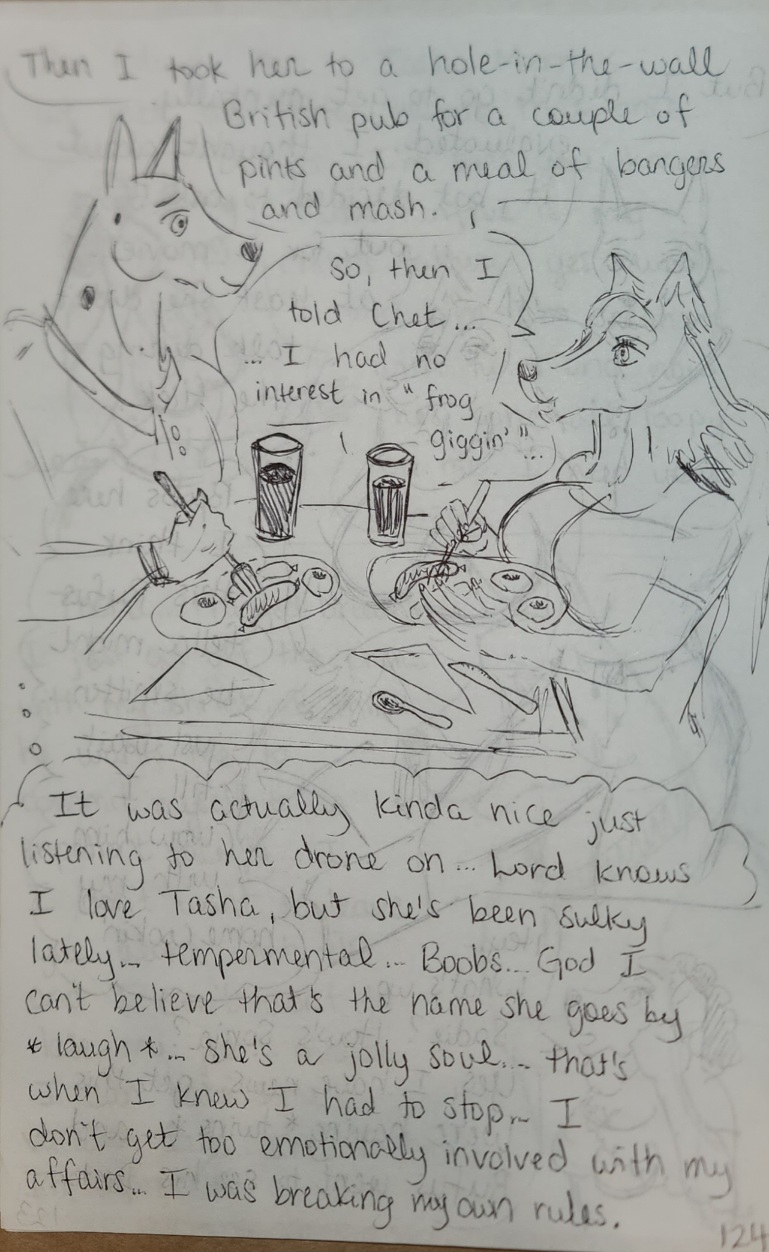 Then I took her to a hole-in-the-wall
British pub for a couple of
pints and a meal of bangers
and mash.
So, then I
told Chet...
... I had no
interest in "frog
giggin'"...
It was actually kinda nice just
listening to her drone on... Lord knows
I love Tasha, but she's been sulky
lately... tempermental... Boobs... God I
can't believe that's the name she goes by
* laugh *... she's a jolly soul... that's
when I knew I had to stop... I
don't get too emotionally involved with my
affairs... I was breaking my own rules.
124